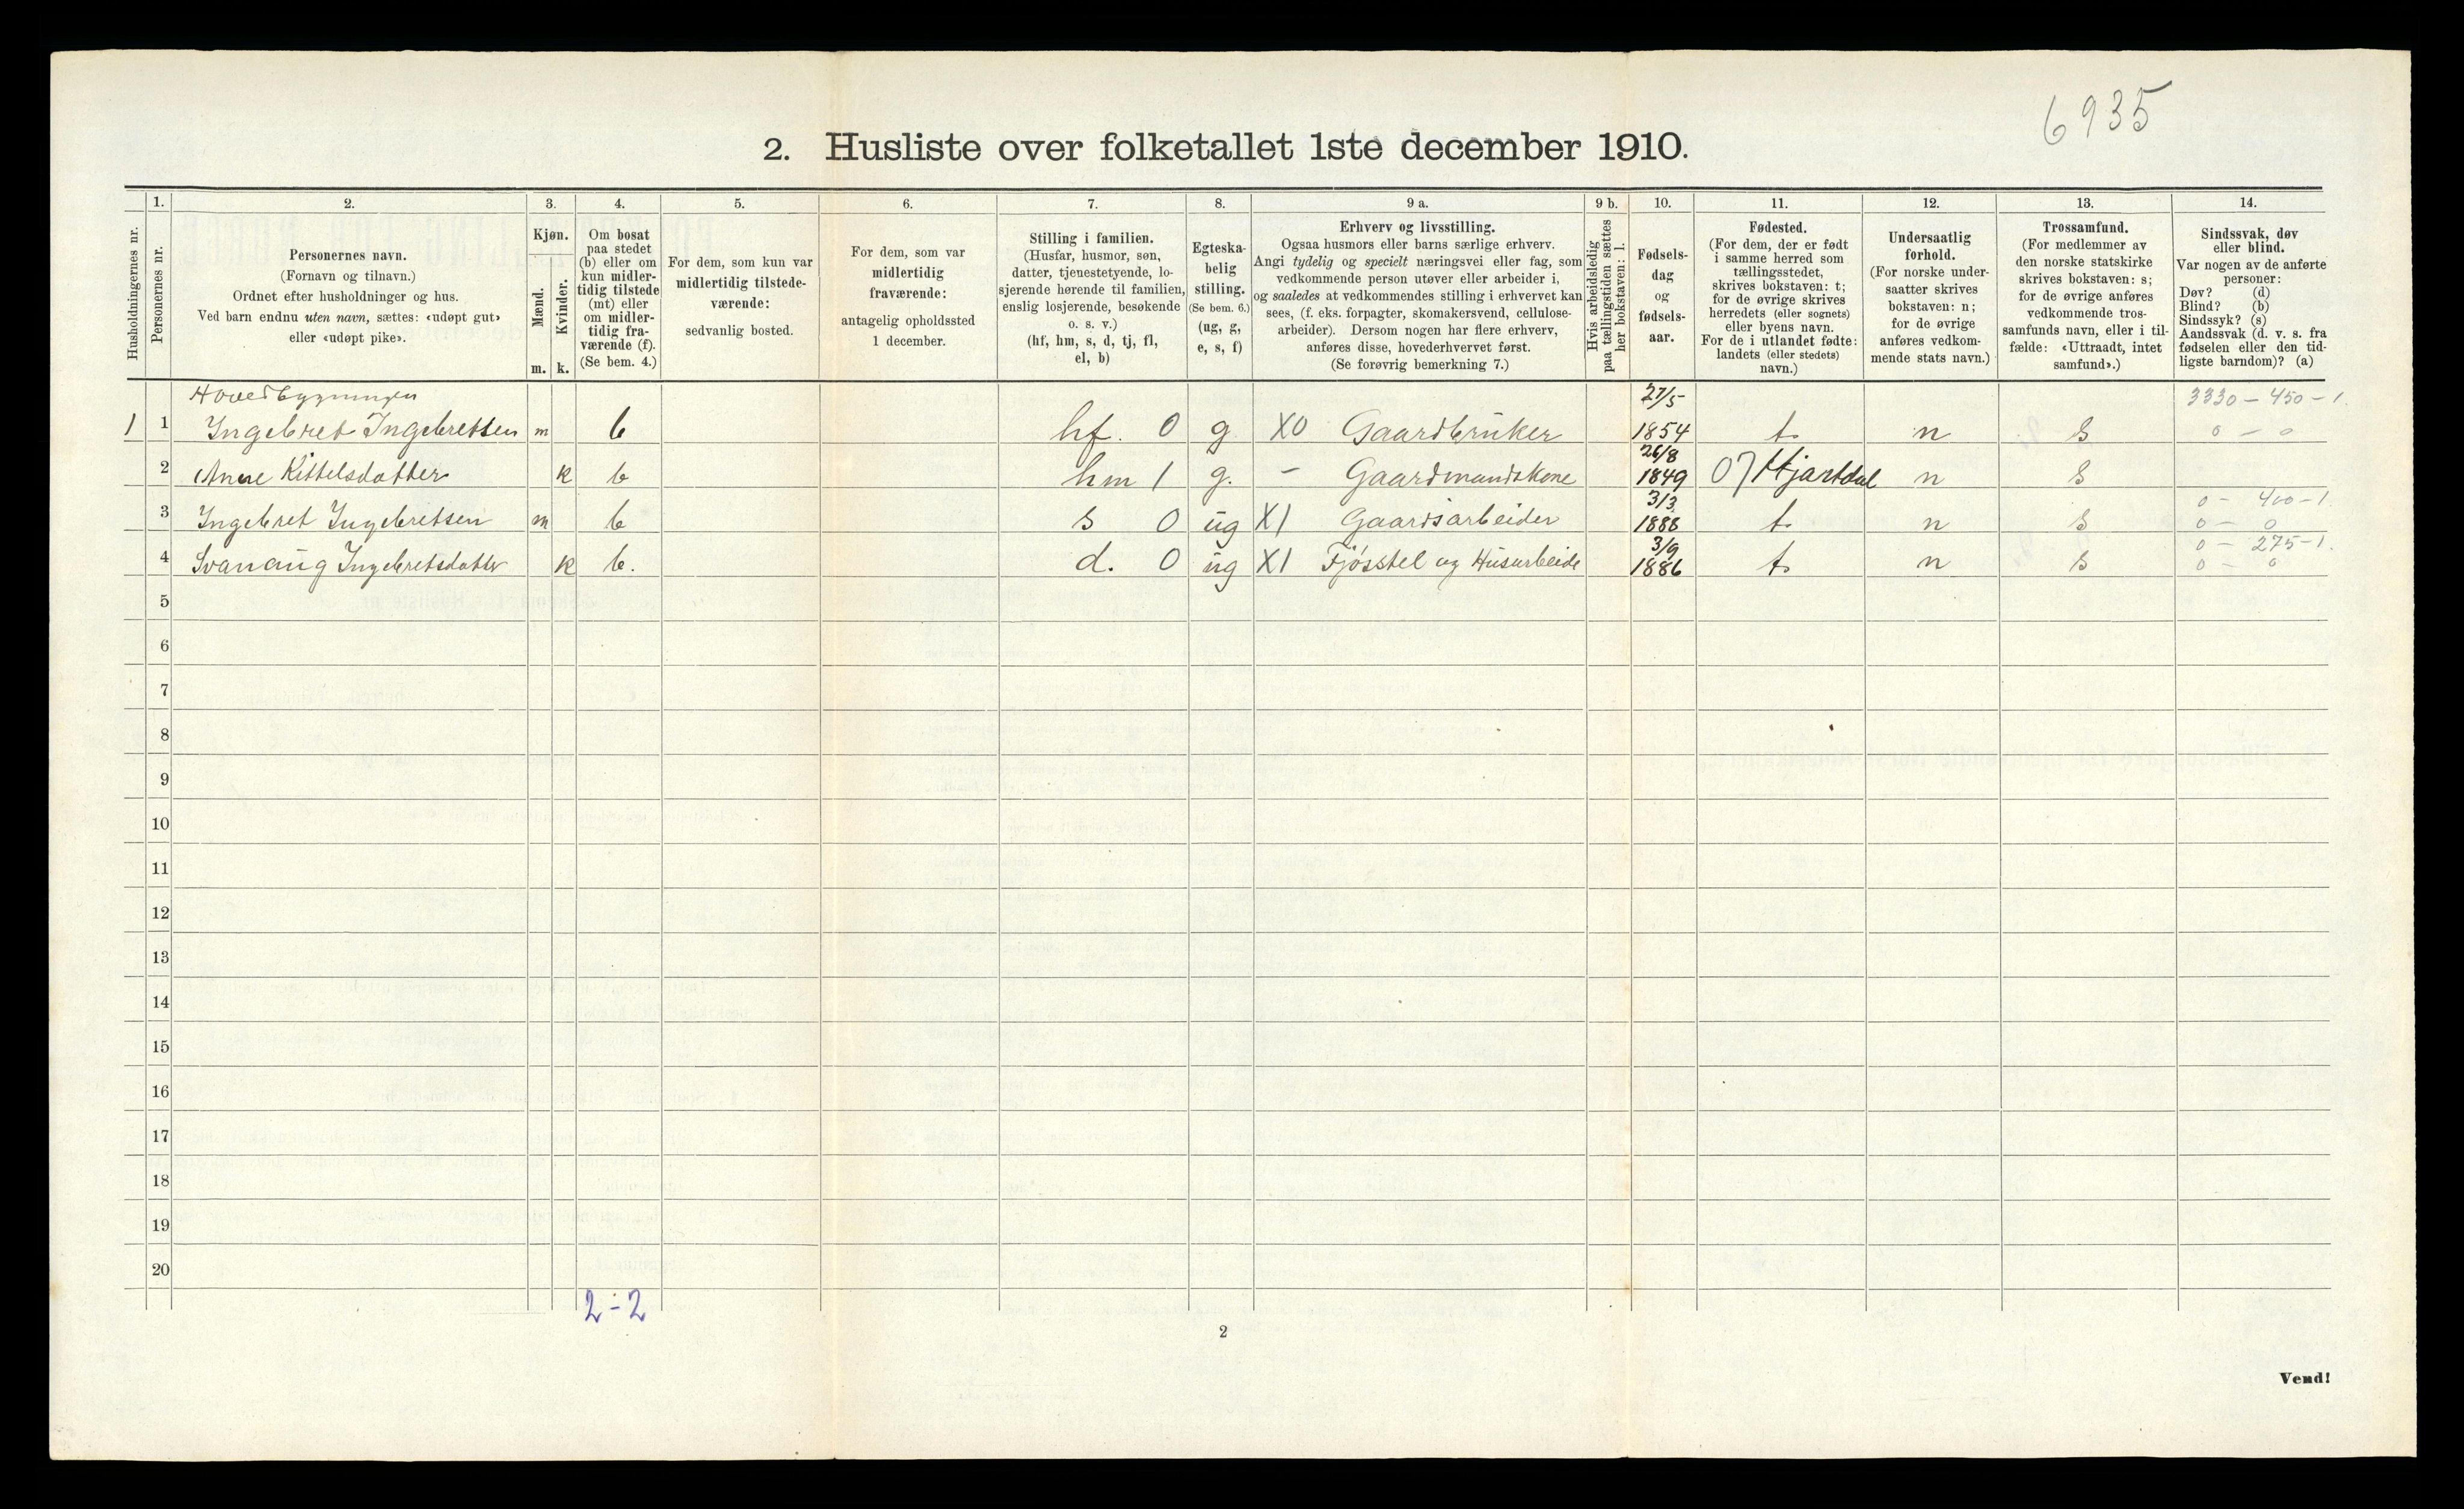 6935
2. Husliste over folketallet 1ste december 1910.
Husholdningernes nr.
1.
Personernes nr.
2.
Personernes navn.
(Fornavn og tilnavn.)
Ordnet efter husholdninger og hus.
Ved barn endnu uten navn, sættes: «udøpt gut»
eller «udøpt pike».
3.
Kjøn.
Mænd.
Kvinder.
m. k.
4.
Om bosat
paa stedet
(b) eller om
kun midler-
tidig tilstede
(mt) eller
om midler-
tidig fra-
værende (f).
(Se bem. 4.)
5.
For dem, som kun var
midlertidig tilstede-
værende:
sedvanlig bosted.
6.
For dem, som var
midlertidig
fraværende:
antagelig opholdssted
1 december.
7.
Stilling i familien.
(Husfar, husmor, søn,
datter, tjenestetyende, lo-
sjerende hørende til familien,
enslig losjerende, besøkende
o. s. v.)
(hf, hm, s, d, tj, fl,
el, b)
8.
Egteska-
belig
stilling.
(Se bem. 6.)
(ug, g,
e, s, f)
9 a.
Erhverv og livsstilling.
Ogsaa husmors eller barns særlige erhverv.
Angi tydelig og specielt næringsvei eller fag, som
vedkommende person utøver eller arbeider i,
og saaledes at vedkommendes stilling i erhvervet kan
sees, (f. eks. forpagter, skomakersvend, cellulose-
arbeider). Dersom nogen har flere erhverv,
anføres disse, hovederhvervet først.
(Se forøvrig bemerkning 7.)
9 b.
Hvis arbeidsledig
paa tællingstiden sættes
her bokstaven: l.
10.
Fødsels-
dag
og
fødsels-
aar.
11.
Fødested.
(For dem, der er født
i samme herred som
tællingsstedet,
skrives bokstaven: t;
for de øvrige skrives
herredets (eller sognets)
eller byens navn.
For de i utlandet fødte:
landets (eller stedets)
navn.)
12.
Undersaatlig
forhold.
(For norske under-
saatter skrives
bokstaven: n;
for de øvrige
anføres vedkom-
mende stats navn.)
13.
Trossamfund.
(For medlemmer av
den norske statskirke
skrives bokstaven: s;
for de øvrige anføres
vedkommende tros-
samfunds navn, eller i til-
fælde: «Uttraadt, intet
samfund».)
14.
Sindssvak, døv
eller blind.
Var nogen av de anførte
personer:
Døv? (d)
Blind? (b)
Sindssyk? (s)
Aandssvak (d. v. s. fra
fødselen eller den tid-
ligste barndom)? (a)
Hovedbygningen 27/5 3330 - 450 - 1.
1 1 Ingebret Ingebretsen m b hf. 0 g X0 Gaardbruker 1854 t. n s 0 - 0
26/8
2 Anne Kittelsdatter k b hm 1 g. - Gaardmandskone 1849 07 Hjartdal n s
3/3 0 - 400 - 1.
3 Ingebret Ingebretsen m b s 0 ug X1 Gaardsarbeider 1888 t. n s 0 - 0
3/9 0 - 275 - 1.
4 Svanaug Ingebretsdatter k b. d. 0 ug X1 Fjøsstel og Husarbeide 1886 t. n s 0 - 0
5
6
7
8
9
10
11
12
13
14
15
16
17
18
19
20
2 - 2
2
Vend!